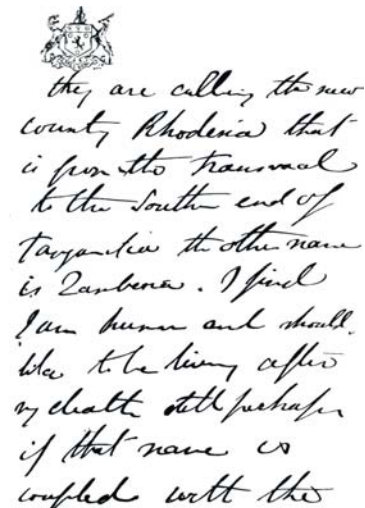 they are calling the new
country Rhodesia that
is from the Transvaal
to the Southern end of
Tanganika the other name
is Zambesia. I find
I am human and should
like to be living after
my death still perhaps
if that name is
coupled with the